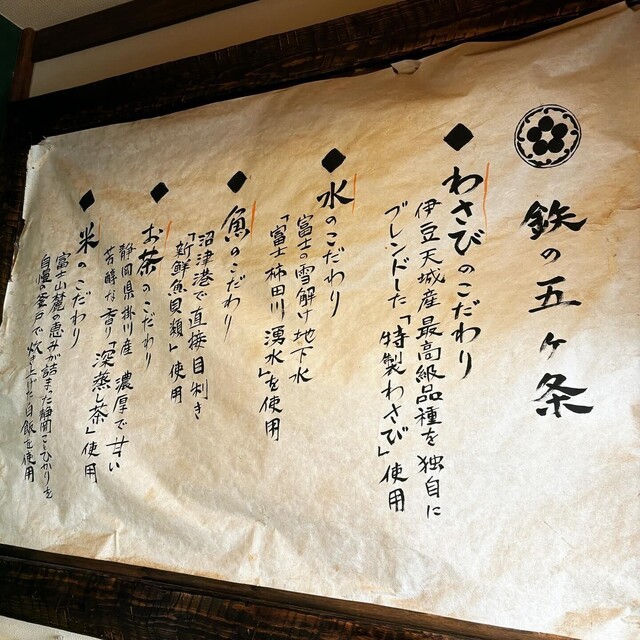 鉄の五ヶ条
◆わさびのこだわり
伊豆天城産最高級品種を独自に
ブレンドした「特製わさび」使用
◆水のこだわり
富士の雪解け地下水
「富士柿田川湧水」を使用
◆魚のこだわり
沼津港で直接目利き
「新鮮魚貝類」使用
◆お茶のこだわり
静岡県掛川産 濃厚で甘い
芳醇な香り「深蒸し茶」使用
◆米のこだわり
富士山麓の恵みが詰まった静岡こしひかりを
自慢の釜戸で炊き上げた白飯を使用